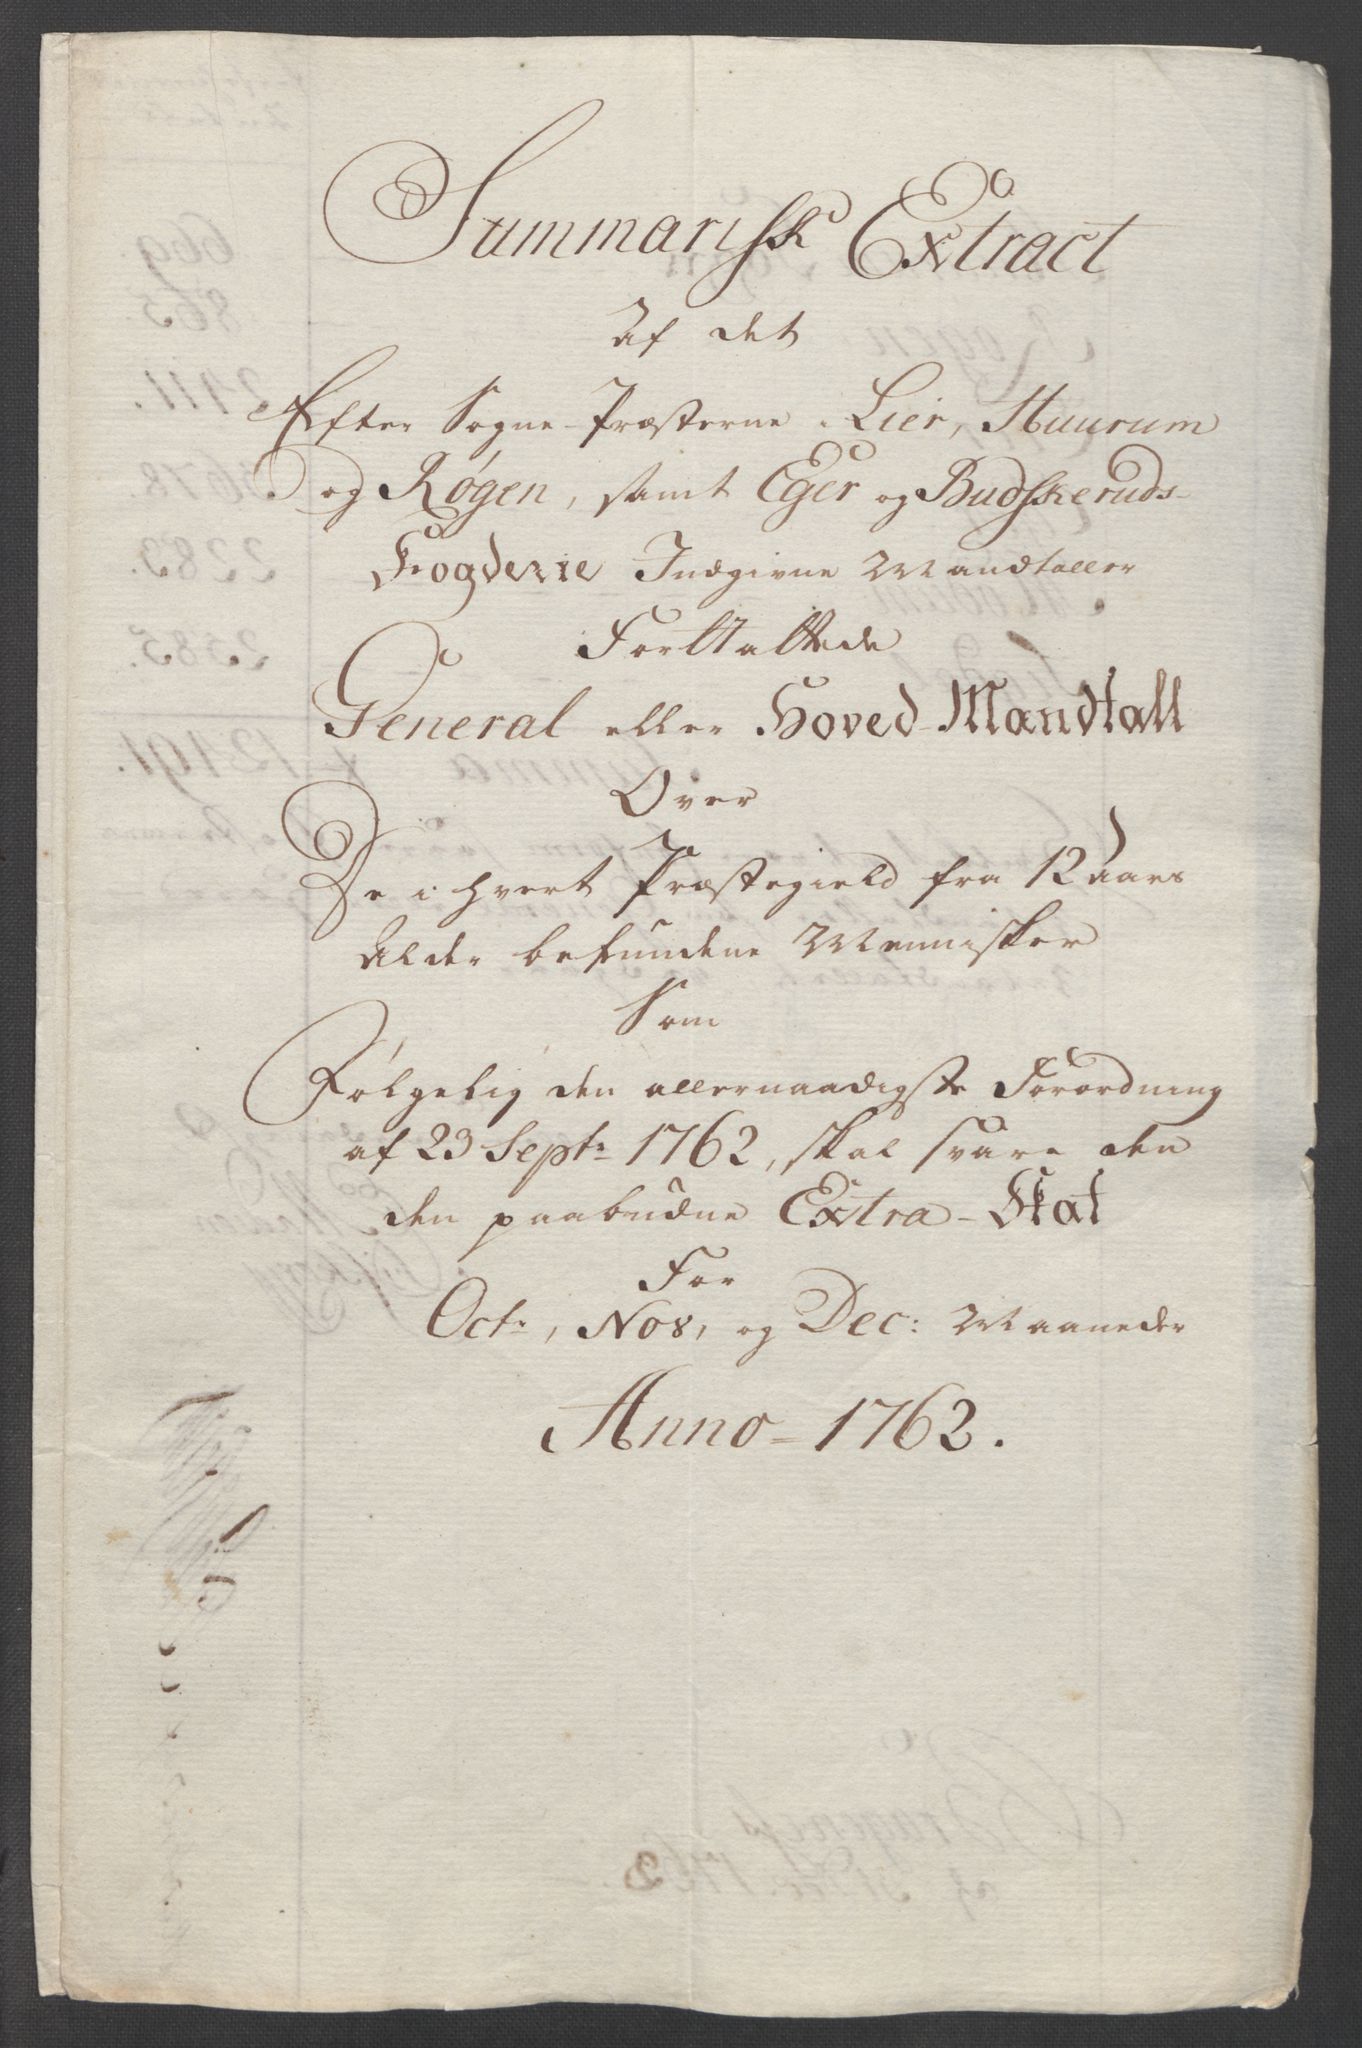 Summarisk Extract
af det
Efter Sogne-Præsterne i Lier, Huurum
og Røgen, samt Eger og Budskeruds-
Fogderie Indgivne Mandtaller
Forfattede
General eller Hoved-Mandtall
Over
De i hvert Præstegield fra 12 aars
Alder befundene Mennisker
Som
Følgelig den allernaadigste Forordning
af 23 Septr 1762, skal svare den
den paabudne Extra-Skat
For
Octr, Nov, og Dec: Maaneder
Anno-1762.